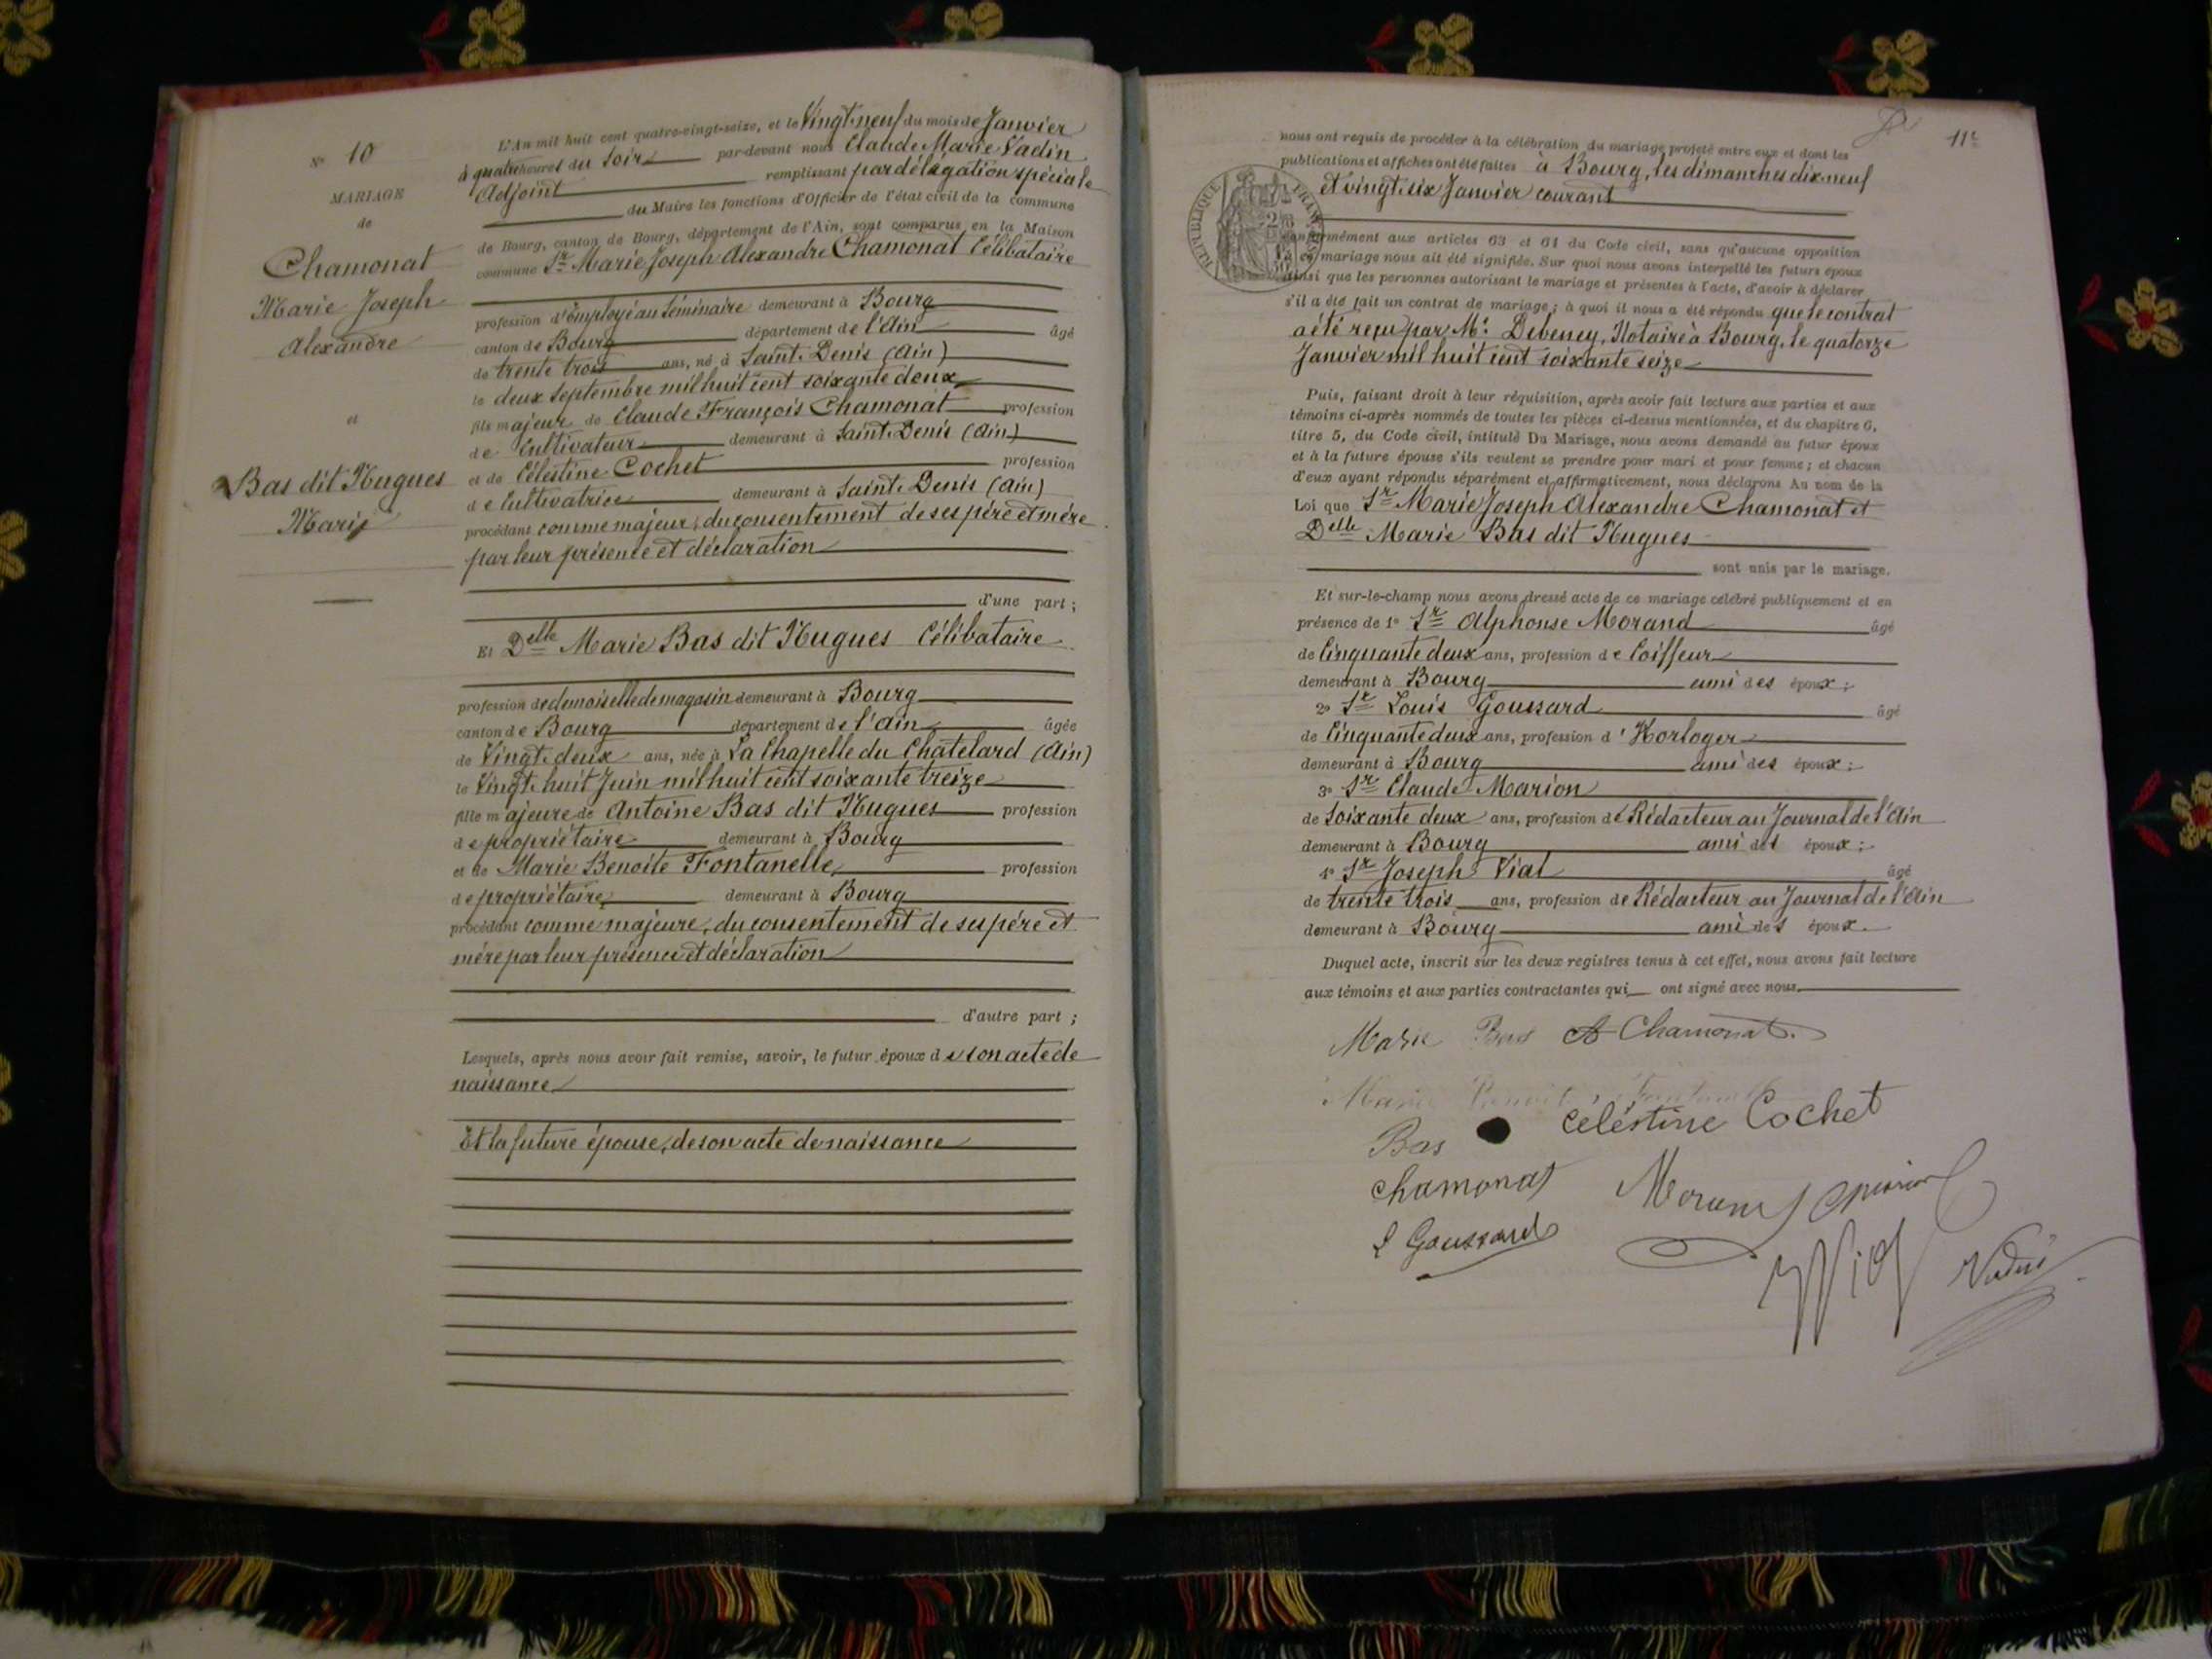 N° 10
MARIAGE
de
Chamonat
Marie Joseph
Alexandre
et
Bas dit Hugues
Marie
L'An mil huit cent quatre-vingt-seize, et le Vingt-neuf du mois de Janvier
à quatre heures du Soir par-devant nous Claude Marie Vadin
Adjoint remplissant par délégation spéciale
du Maire les fonctions d'Officier de l'état civil de la commune
de Bourg, canton de Bourg, département de l'Ain, sont comparus en la Maison
commune Sr Marie Joseph Alexandre Chamonat Célibataire
profession d'employé au Séminaire demeurant à Bourg
canton de Bourg département de l'Ain âgé
de trente trois ans, né à Saint-Denis (Ain)
le deux Septembre mil huit cent soixante deux
fils majeur de Claude François Chamonat profession
de Cultivateur demeurant à Saint-Denis (Ain)
et de Célestine Cochet profession
de Cultivatrice demeurant à Saint-Denis (Ain)
procédant comme majeur, du consentement de ses père et mère
par leur présence et déclaration
d'une part ;
Et Delle Marie Bas dit Hugues Célibataire
profession de demoiselle de magasin demeurant à Bourg
canton de Bourg département de l'Ain âgée
de Vingt-deux ans, née à La Chapelle du Chatelard (Ain)
le Vingt-huit Juin mil huit cent soixante treize
fille majeure de Antoine Bas dit Hugues profession
de propriétaire demeurant à Bourg
et de Marie Benoite Fontanelle, profession
de propriétaire demeurant à Bourg
procédant comme majeure, du consentement de ses père et
mère par leur présence et déclaration
d'autre part ;
Lesquels, après nous avoir fait remise, savoir, le futur époux de son acte de
naissance
Et la future épouse, de son acte de naissance
11e
nous ont requis de procéder à la célébration du mariage projeté entre eux et dont les
publications et affiches ont été faites à Bourg, les dimanches dix-neuf
et vingt-six Janvier courant
RÉPUBLIQUE FRANÇAISE
conformément aux articles 63 et 64 du Code civil, sans qu'aucune opposition
mariage nous ait été signifiée. Sur quoi nous avons interpellé les futurs époux
ainsi que les personnes autorisant le mariage et présentes à l'acte, d'avoir à déclarer
s'il a été fait un contrat de mariage ; à quoi il nous a été répondu que le contrat
a été reçu par Me Debeney, Notaire à Bourg, le quatorze
Janvier mil huit cent soixante seize
Puis, faisant droit à leur réquisition, après avoir fait lecture aux parties et aux
témoins ci-après nommés de toutes les pièces ci-dessus mentionnées, et du chapitre 6,
titre 5, du Code civil, intitulé Du Mariage, nous avons demandé au futur époux
et à la future épouse s'ils veulent se prendre pour mari et pour femme ; et chacun
d'eux ayant répondu séparément et affirmativement, nous déclarons Au nom de la
Loi que Sr Marie Joseph Alexandre Chamonat et
Delle Marie Bas dit Hugues
sont unis par le mariage.
Et sur-le-champ nous avons dressé acte de ce mariage célébré publiquement et en
présence de 1° Sr Alphonse Morand âgé
de Cinquante deux ans, profession de Coiffeur
demeurant à Bourg ami des époux ;
2° Sr Louis Goussard âgé
de Cinquante deux ans, profession d'Horloger
demeurant à Bourg ami des époux ;
3° Sr Claude Marion
de Soixante deux ans, profession de Rédacteur au Journal de l'Ain
demeurant à Bourg ami des époux ;
4° Sr Joseph Vial âgé
de trente trois ans, profession de Rédacteur au Journal de l'Ain
demeurant à Bourg ami des époux.
Duquel acte, inscrit sur les deux registres tenus à cet effet, nous avons fait lecture
aux témoins et aux parties contractantes qui ont signé avec nous.
Marie Bas A Chamonat.
Marie
Bas Céléstine Cochet
Chamonat Morand
L Goussard